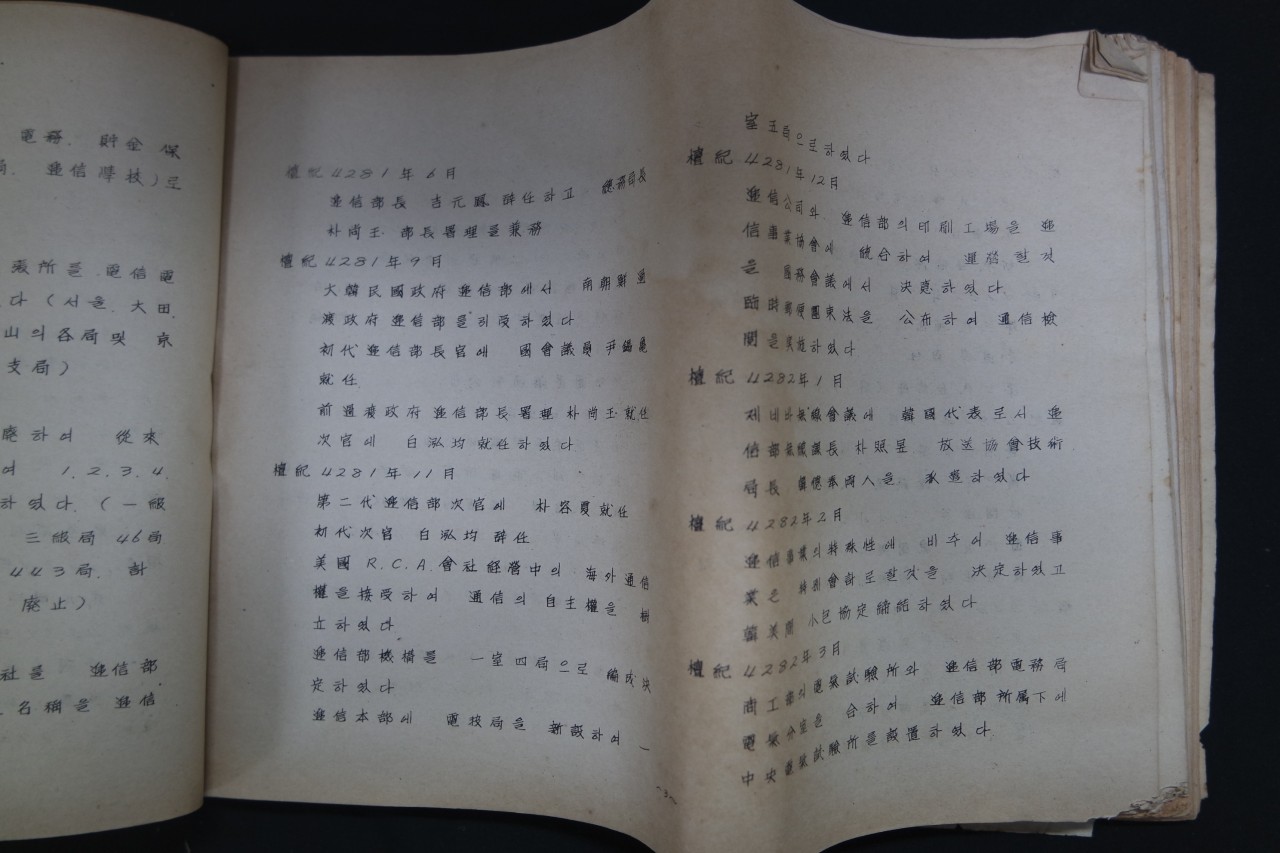 電務. 貯金 保
局. 遞信學校)로
表所를 電信電
다 (서울. 大田.
山의 各局 및 京
支局)
廢하여 從來
여 1. 2. 3. 4.
하였다. (一級
三級局 46局
443局. 計
廢止)
社를 遞信部
名稱을 遞信
檀紀 4281年 6月
遞信部長 吉元鳳 辭任하고 總務局長
朴尚玉 部長署理를 兼務
檀紀 4281年 9月
大韓民國政府 遞信部에서 南朝鮮 過
渡政府 遞信部를 引受하였다
初代 遞信部長官에 國會議員 尹錫龜
就任
前 過渡政府 遞信部長署理 朴尚玉 就任
次官에 白泓均 就任하였다
檀紀 4281年 11月
第二代 遞信部 次官에 朴容夏 就任
初代次官 白泓均 辭任
美國 R.C.A.會社 経營中의 海外通信
權을 接受하여 通信의 自主權을 樹
立하였다
遞信部機構를 一室四局으로 編成 決
定하였다
遞信本部에 電技局을 新設하여 一
室五局으로하였다
檀紀 4281年 12月
遞信公司와 遞信部의 印刷工場을 遞
信事業協會에 統合하여 運營할것
을 國務會議에서 決意하였다
臨時郵便團束法을 公布하여 通信檢
閱을 実施하였다
檀紀 4282年 1月
제네바 無線會議에 韓國代表로서 遞
信部 無線課長 朴 放送協會技術
局長 韓 兩人을 派遣하였다
檀紀 4282年 2月
遞信事業의 特殊性에 비추어 遞信事
業은 特別會計로할것을 決定하였고
韓美間 小包協定 締結하였다
檀紀 4282年 3月
商工部의 電氣試驗所와 遞信部電務局
電氣分室을 合하여 遞信部 所属下에
中央電氣試驗所를 設置하였다.
-3-